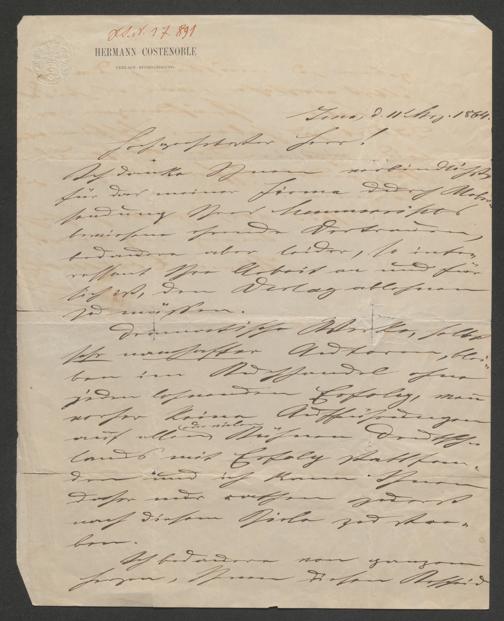 HERMANN COSTENOBLE
VERLAGS-BUCHHANDLUNG.
Jena, d. 11 1884.
Hochgeehrter Herr!
Ich danke Ihnen verbindlichst
für das meiner Firma durch Ueber-
sendung Ihres Manuscriptes
bewiesene ehrende Vertrauen,
bedauere aber leider, so inte-
ressant Ihre Arbeit an und für
sich ist, den Verlag ablehnen
zu müssen.
Dramatische Werke, selbst
sehr namhafter Autoren, blei-
ben im Buchhandel ohne
jeden lohnenden Erfolg, wenn
vorher keine Aufführungen
auf allen oder vielen Bühnen Deutsch-
lands mit Erfolg stattfan-
den und ich kann Ihnen
daher nur rathen zuerst
nach diesem Ziele zu stre-
ben.
Ich bedauere von ganzem
Herzen, Ihnen diesen Bescheid